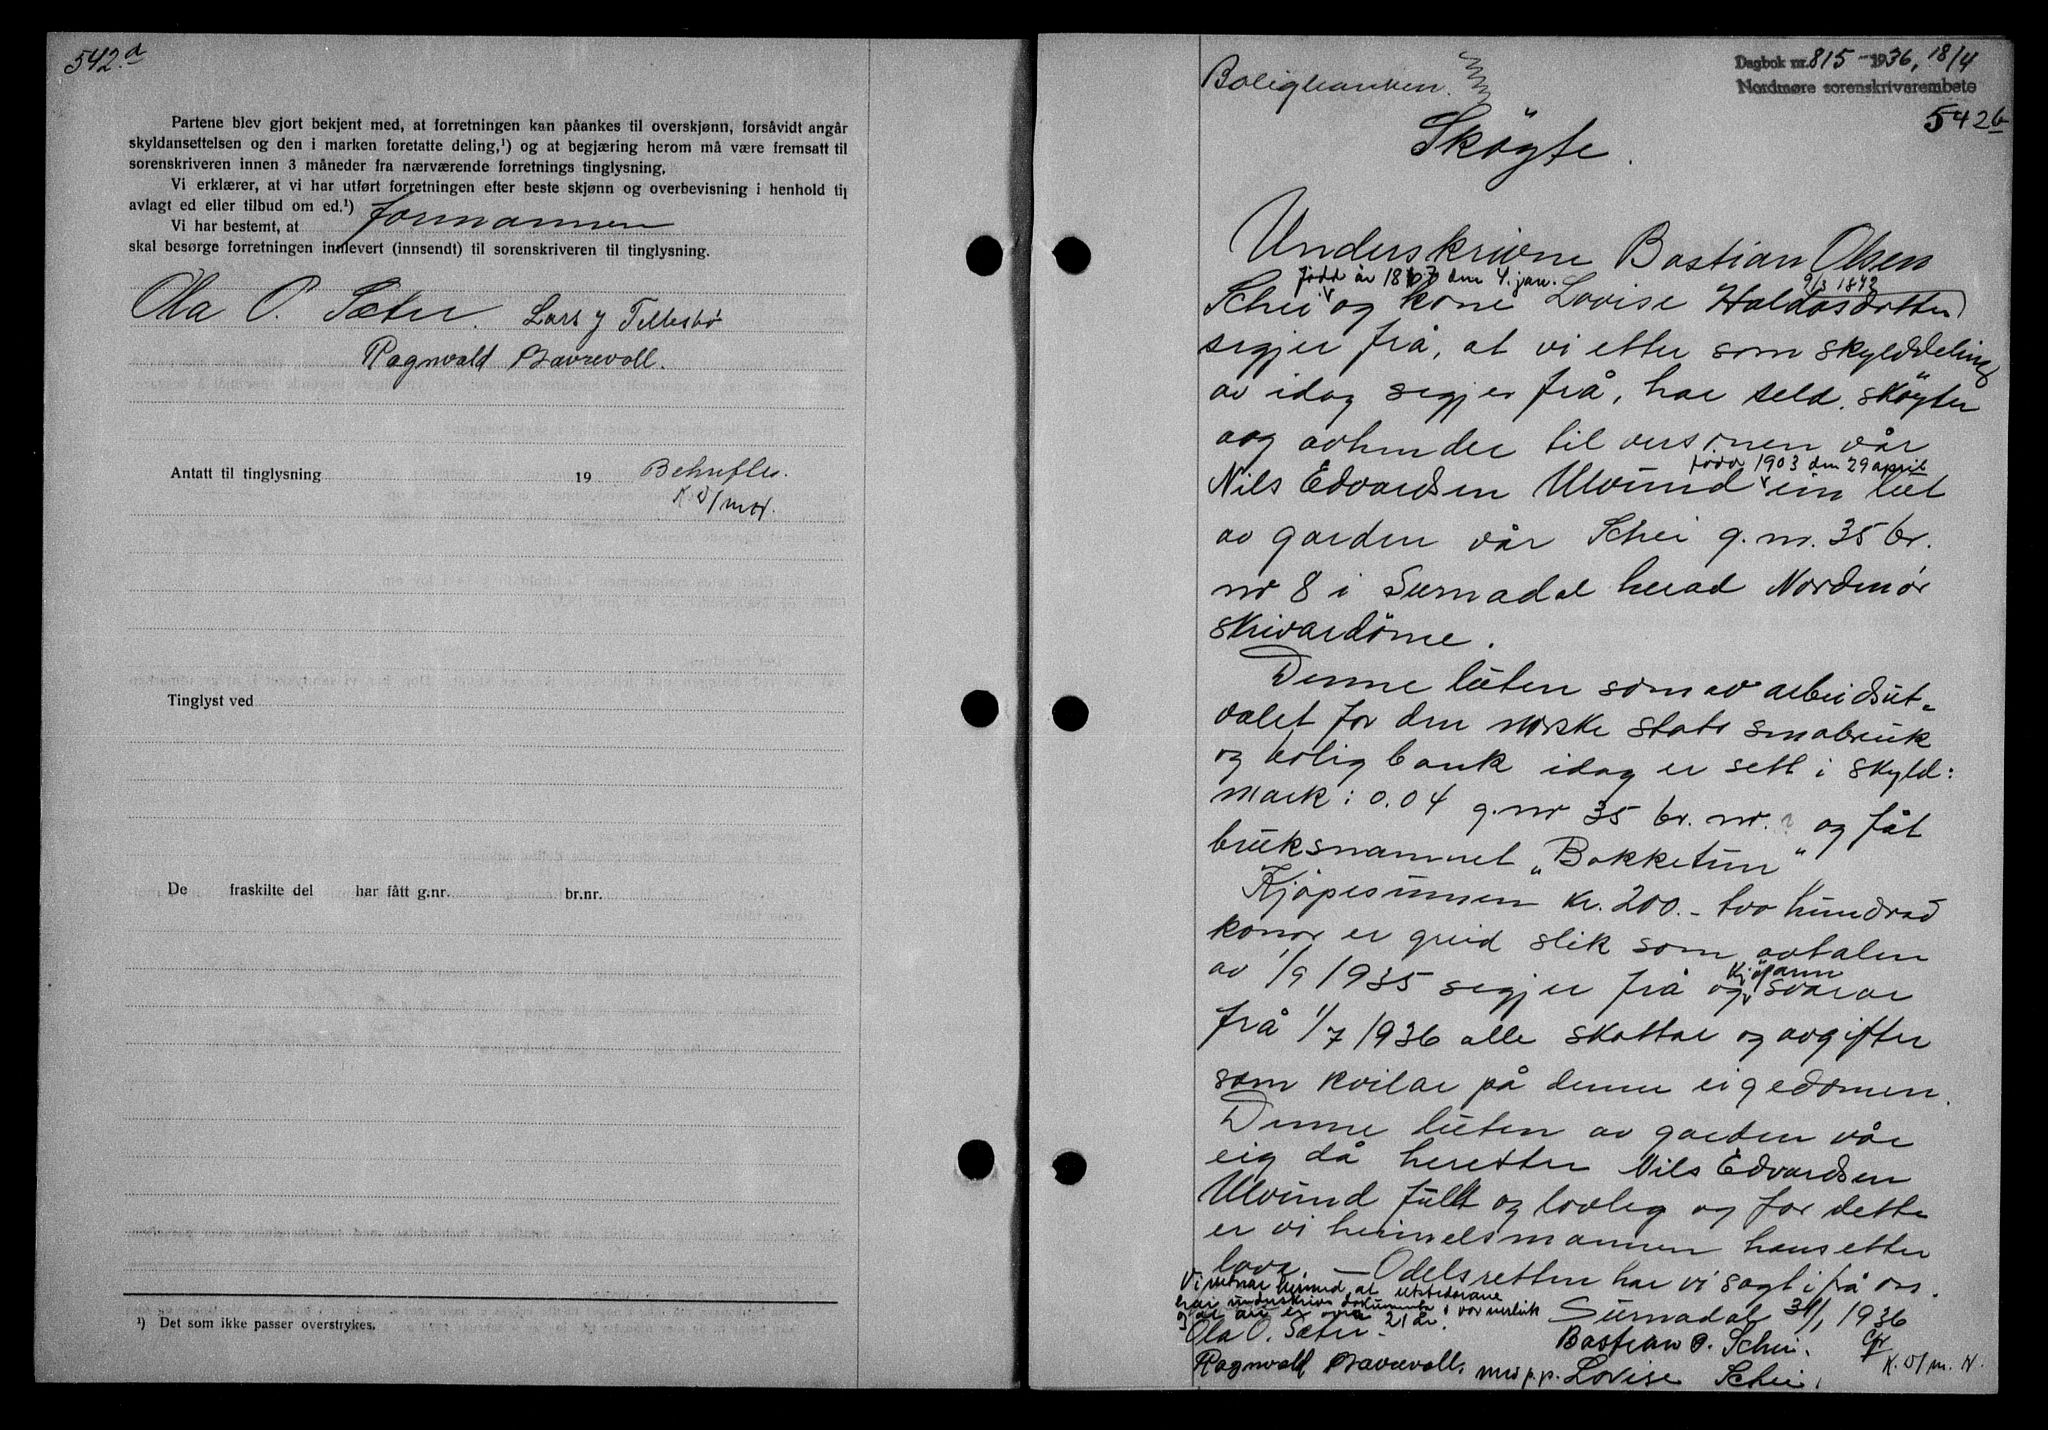 542.a
Partene blev gjort bekjent med, at forretningen kan påankes til overskjønn, forsåvidt angår
skyldansettelsen og den i marken foretatte deling,¹) og at begjæring herom må være fremsatt til
sorenskriveren innen 3 måneder fra nærværende forretnings tinglysning.
Vi erklærer, at vi har utført forretningen efter beste skjønn og overbevisning i henhold til
avlagt ed eller tilbud om ed.¹)
Vi har bestemt, at formannen
skal besørge forretningen innlevert (innsendt) til sorenskriveren til tinglysning.
Ola O. Sæter. Lars J Tellesbø
Ragnvald Bævrevoll.
Antatt til tinglysning 19 Behrefles.
K D/mor.
Tinglyst ved
De fraskilte del har fått g.nr. br.nr.
¹) Det som ikke passer overstrykes.
Boligbanken.
Dagbok nr. 815 - 1936, 18/4
Nordmøre sorenskriverembete
542b
Skøyte.
Underskrivne Bastian Olsen
født år 1867 den 4. jan. 9/3 1872
Schei og kone Lovise Haldosdotter
segjer frå, at vi etter som skylddeling
av idag segjer frå, har seld, skøyter
og avhender til versonen vår
født 1903 den 29 april
Nils Edvardsen Ulvund ein lut
av garden vår Schei g.nr. 35 br.
nr 8 i Surnadal herad Nordmør
skrivardøme.
Denne luten som av arbeidsut-
valet for den norske stats småbruk
og bolig bank idag er sett i skyld:
mark: 0.04 g.nr 35 br. nr. ? og fåt
bruksnamnet „Bakketun"
Kjøpesummen kr. 200.- tvo hundrad
kronor er greid slik som avtalen
av 1/9 1935 segjer frå og kjøparen svarar
frå 1/7 1936 alle skattar og avgifter
som kvilar på denne eigedomen.
Denne luten av garden vår
eig då heretter Nils Edvardsen
Ulvund fullt og lovleg og for dette
er vi heimelsmannen hans etter
lova. - Odelsretten har vi sagt ifrå oss.
Vi vitnar hermed at utstederane
har underskrive dokumentet i vor nerleik
og at dei er over 21 år.
Surnadal 31/1 1936
Ola O. Sæter.
Bastian O. Schei.
Ragnvald Bævrevoll.
med p.p. Lovise Schei.
K. D/m. N.